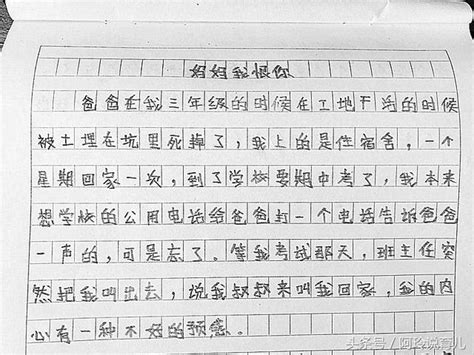 妈妈我恨你
爸爸在我三年级的时候在工地干活的时候
被土埋在坑里死掉了，我上的是住宿舍，一个
星期回家一次，到了学校要期中考了，我本来
想学校的公用电话给爸爸打一个电话告诉爸爸
一声的，可是忘了。等我考试那天，班主任突
然把我叫出去，说我叔叔来叫我回家，我的内
心有一种不好的预感。
头条号/阿长说育儿